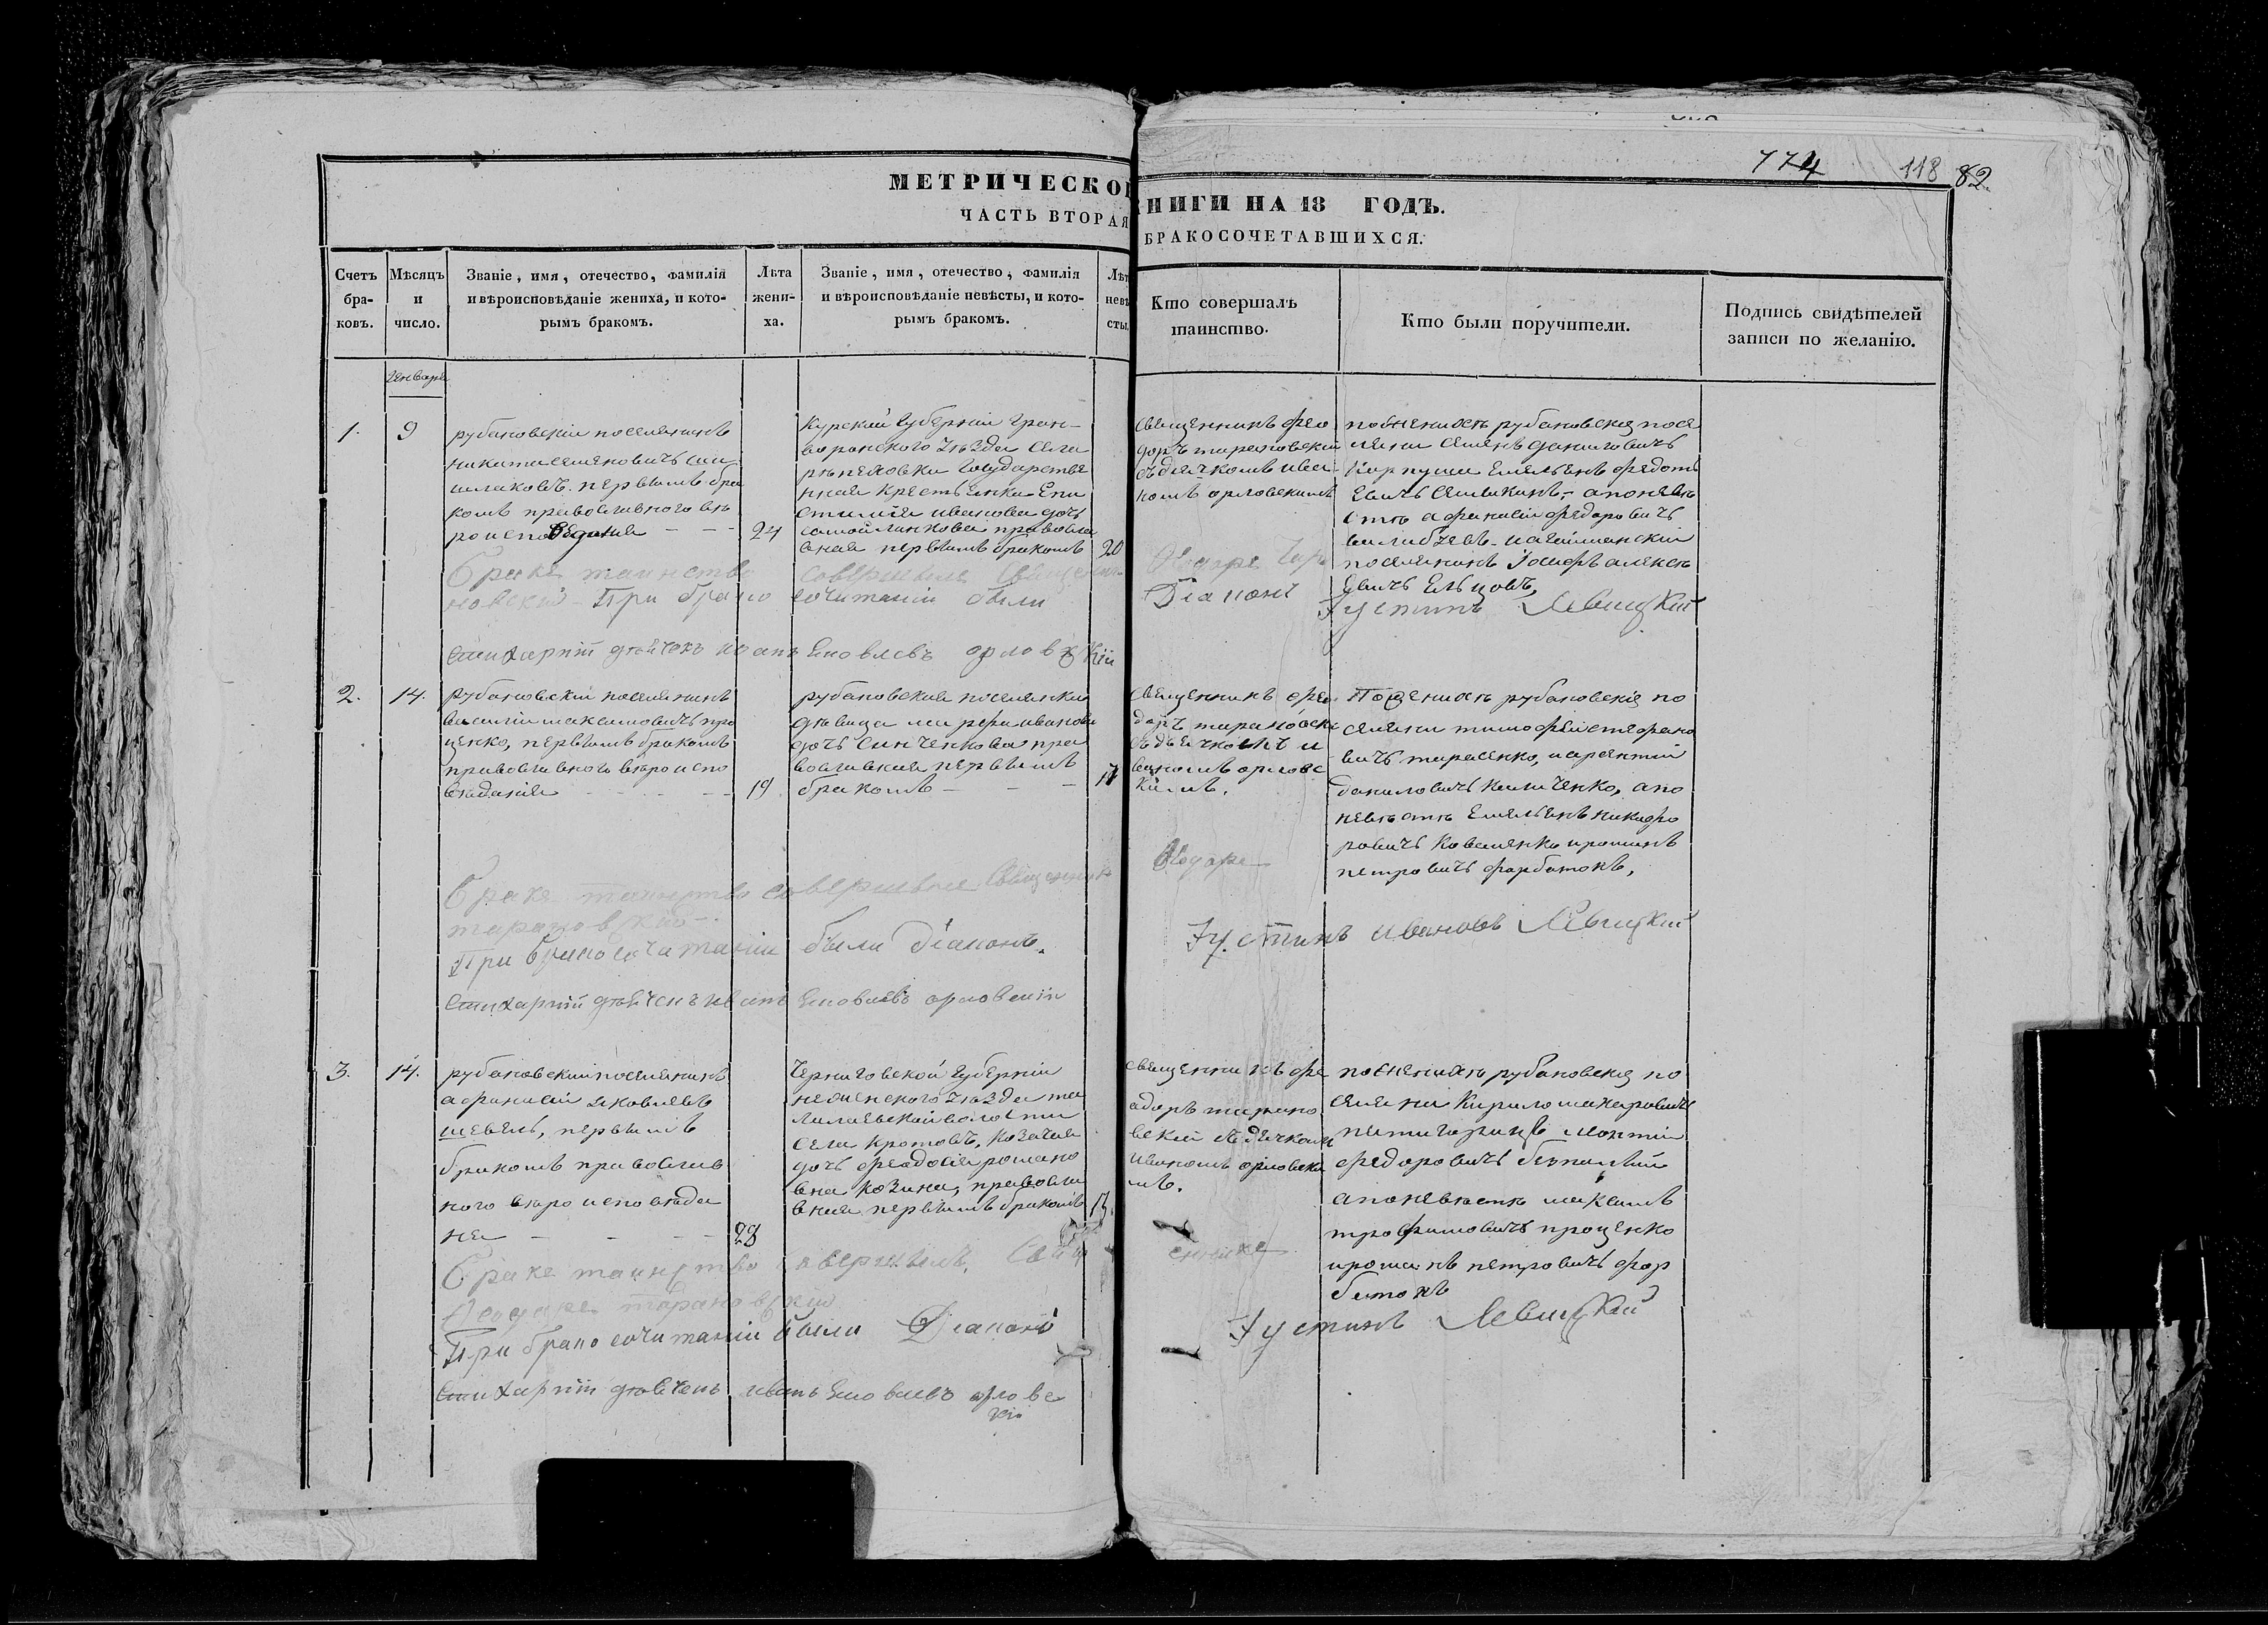 774 118 82
МЕТРИЧЕСКО НИГИ НА 18 ГОДЪ.
ЧАСТЬ ВТОРАЯ БРАКОСОЧЕТАВШИХСЯ.
Счетъ бра-ковъ.
Мѣсяцъ и число.
Званіе, имя, отечество, фамилія
и вѣроисповѣданіе жениха, и кото-
рымъ бракомъ.
Лѣта жени-ха.
Званіе, имя, отечество, фамилія
и вѣроисповѣданіе невѣсты, и кото-
рымъ бракомъ.
Лѣт невѣ сты
Кто совершалъ
таинство.
Кто были поручители.
Подпись свидѣтелей
записи по желанію.
Января
1.
9
рубановскій поселянинъ
никита семеновичъ
первымъ бра
комъ православного вѣ
роисповеданія
24
Курской Губерніи Грай-
воронского уѣзда села
Государстве
нная крестьянка
иванова дочь
правосла
вная первымъ бракомъ
20
Священникъ Фео
доръ тарановскій
съ дьячкомъ ива
номъ орловскимъ
по женихѣ рубановскія посе
ляни семенъ даниловичъ
емельянъ федотъ
евичъ а по невѣ
стѣ афанасій федоровичъ
поселянинъ Іосифъ алексѣ
евичъ Ельцовъ,
Браке таинство совершилъ Священни
новскій При брако сочитаніи были
Діаконъ Іустинъ Левицкій
Стихарній дьячекъ иванъ яковлевъ орловскій
2.
14.
рубановскій поселянинъ
василій максимовичъ про
ценко, первымъ бракомъ
православного вѣроиспо
вѣданія
19
рубановская поселянка
дѣвица марфа иванова
дочь Синченкова пра
вославная первымъ
бракомъ
17
Священникъ Фео
доръ тарановск
съ дьячкомъ и
ваномъ орловс
кимъ.
По женихѣ рубановскія по
селяни тимофей стефано
вичъ тарасенко,
даниловичъ а по
невѣстѣ Емельянъ никифо
ровичъ Коваленко
петровичъ фарботокъ,
Браке таинство совершилъ Священник
Феодоре
тарановскій
При бракосочитаніи были Діаконъ
Іустинъ Ивановъ Левицкій
Стихарній дьячекъ иванъ яковлевъ орловскій
3.
14.
рубановский поселянинъ
афанасій яковлевъ
шевель, первымъ
бракомъ православ
ного вѣроисповѣда
нія
28
Черниговской Губерніи
нѣженского уѣзда
волости
села кротовъ, козачая
дочь феодосія романо
вна козина, правосла
вная первымъ бракомъ
Священникъ Фе
одоръ тарано
вскій съ дьячком
иваномъ орловски
мъ.
по женихѣ рубановскія по
селяни Кирило макаровичъ
леонтій
федоровичъ
а по невѣстѣ максимъ
трофимовичъ проценко
петровичъ фар
ботокъ
Браке таинство совершилъ Свящ енникъ
Феодоре тарановскій
При брако сочитаніи были Діаконъ
Іустинъ Левицкій
Стихарній дьячекъ иванъ яковлевъ орловс
кій